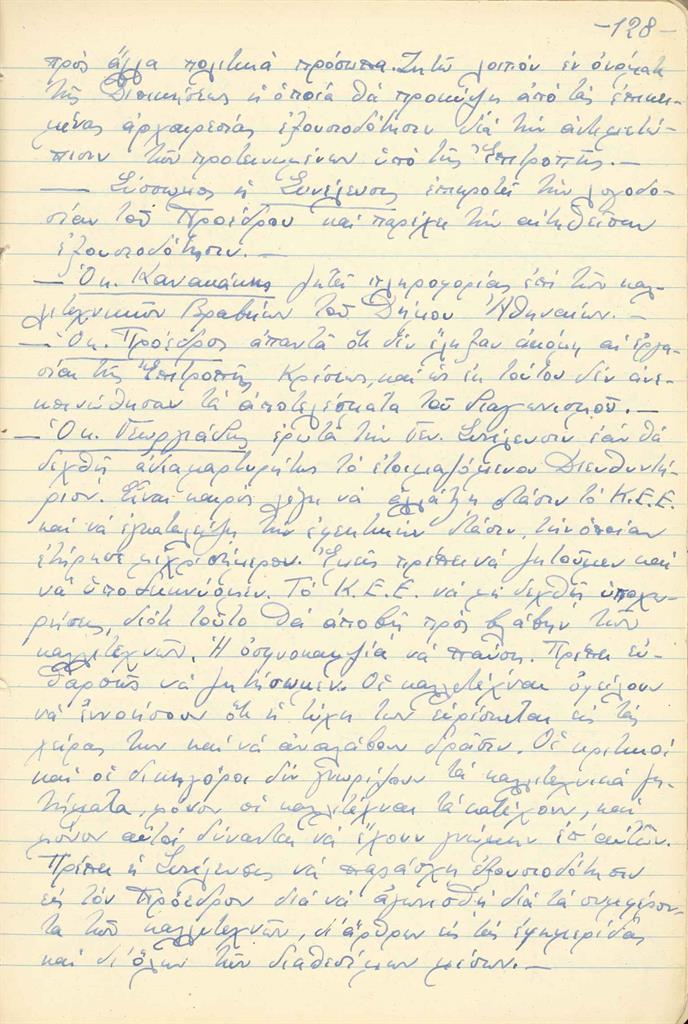 -128-
πρὸς ἄλλα πολιτικὰ πρόσωπα. Ζητῶ λοιπόν ἐν ὀνόματι
τῆς Διοικήσεως ἡ ὁποία θὰ προκύψῃ ἀπὸ τὰς ἐπικει-
μένας ἀρχαιρεσίας ἐξουσιοδότησιν διὰ τὴν ἀντιμετώ-
πισιν τῶν προτεινομένων ὑπὸ τῆς Ἐπιτροπῆς. —
— Σύσσωμος ἡ Συνέλευσις ἐπικροτεῖ τὴν λογοδο-
σίαν τοῦ Προέδρου καὶ παρέχει τὴν αἰτηθεῖσαν
ἐξουσιοδότησιν. —
— Ὁ κ. Κανακάκης ζητεῖ πληροφορίας ἐπὶ τῶν καλ-
λιτεχνικῶν Βραβείων τοῦ Δήμου Ἀθηναίων. —
— Ὁ κ. Πρόεδρος ἀπαντᾶ ὅτι δὲν ἔληξαν ἀκόμη αἱ ἐργα-
σίαι τῆς Ἐπιτροπῆς Κρίσεως, καὶ ὡς ἐκ τούτου δὲν ἀνε-
κοινώθησαν τὰ ἀποτελέσματα τοῦ διαγωνισμοῦ. —
— Ὁ κ. Γεωργιάδης ἐρωτᾶ τὴν Γεν. Συνέλευσιν ἐάν θὰ
δεχθῇ ἀδιαμαρτυρήτως τὸ ἑτοιμαζόμενον Διευθυντή-
ριον. Εἶναι καιρός λέγει νὰ ἀλλάξῃ στάσιν τὸ Κ.Ε.Ε.
καὶ νὰ ἐγκαταλείψῃ τὴν ἐφεκτικήν στάσιν, τὴν ὁποίαν
ἐτήρησε μέχρι σήμερον. Ἐμεῖς πρέπει νὰ ζητοῦμεν καὶ
νὰ ὑποδεικνύομεν. Τὸ Κ.Ε.Ε. νὰ μὴ δεχθῇ ὑποχω-
ρήσεις, διότι τοῦτο θὰ ἀποβῇ πρὸς βλάβην τῶν
καλλιτεχνῶν. Ἡ ὀσφυοκαμψία νὰ παύσῃ. Πρέπει εὐ-
θαρσῶς νὰ ζητήσωμεν. Οἱ καλλιτέχναι ὀφείλουν
νὰ ἐννοήσουν ὅτι ἡ τύχη των εὑρίσκεται εἰς τὰς
χεῖρας των καὶ νὰ ἀναλάβουν δρᾶσιν. Οἱ κριτικοί
καὶ οἱ δικηγόροι δὲν γνωρίζουν τὰ καλλιτεχνικὰ ζη-
τήματα, μόνον οἱ καλλιτέχναι τὰ κατέχουν, καὶ
μόνον αὐτοί δύνανται νὰ ἔχουν γνώμην ἐπ' αὐτῶν.
Πρέπει ἡ Συνέλευσις νὰ παράσχῃ ἐξουσιοδότησιν
εἰς τὸν Πρόεδρον διὰ νὰ ἀγωνισθῇ διὰ τὰ συμφέρον-
τα τῶν καλλιτεχνῶν, δι' ἄρθρων εἰς τὰς ἐφημερίδας
καὶ δι' ὅλων τῶν διαθεσίμων μέσων. —